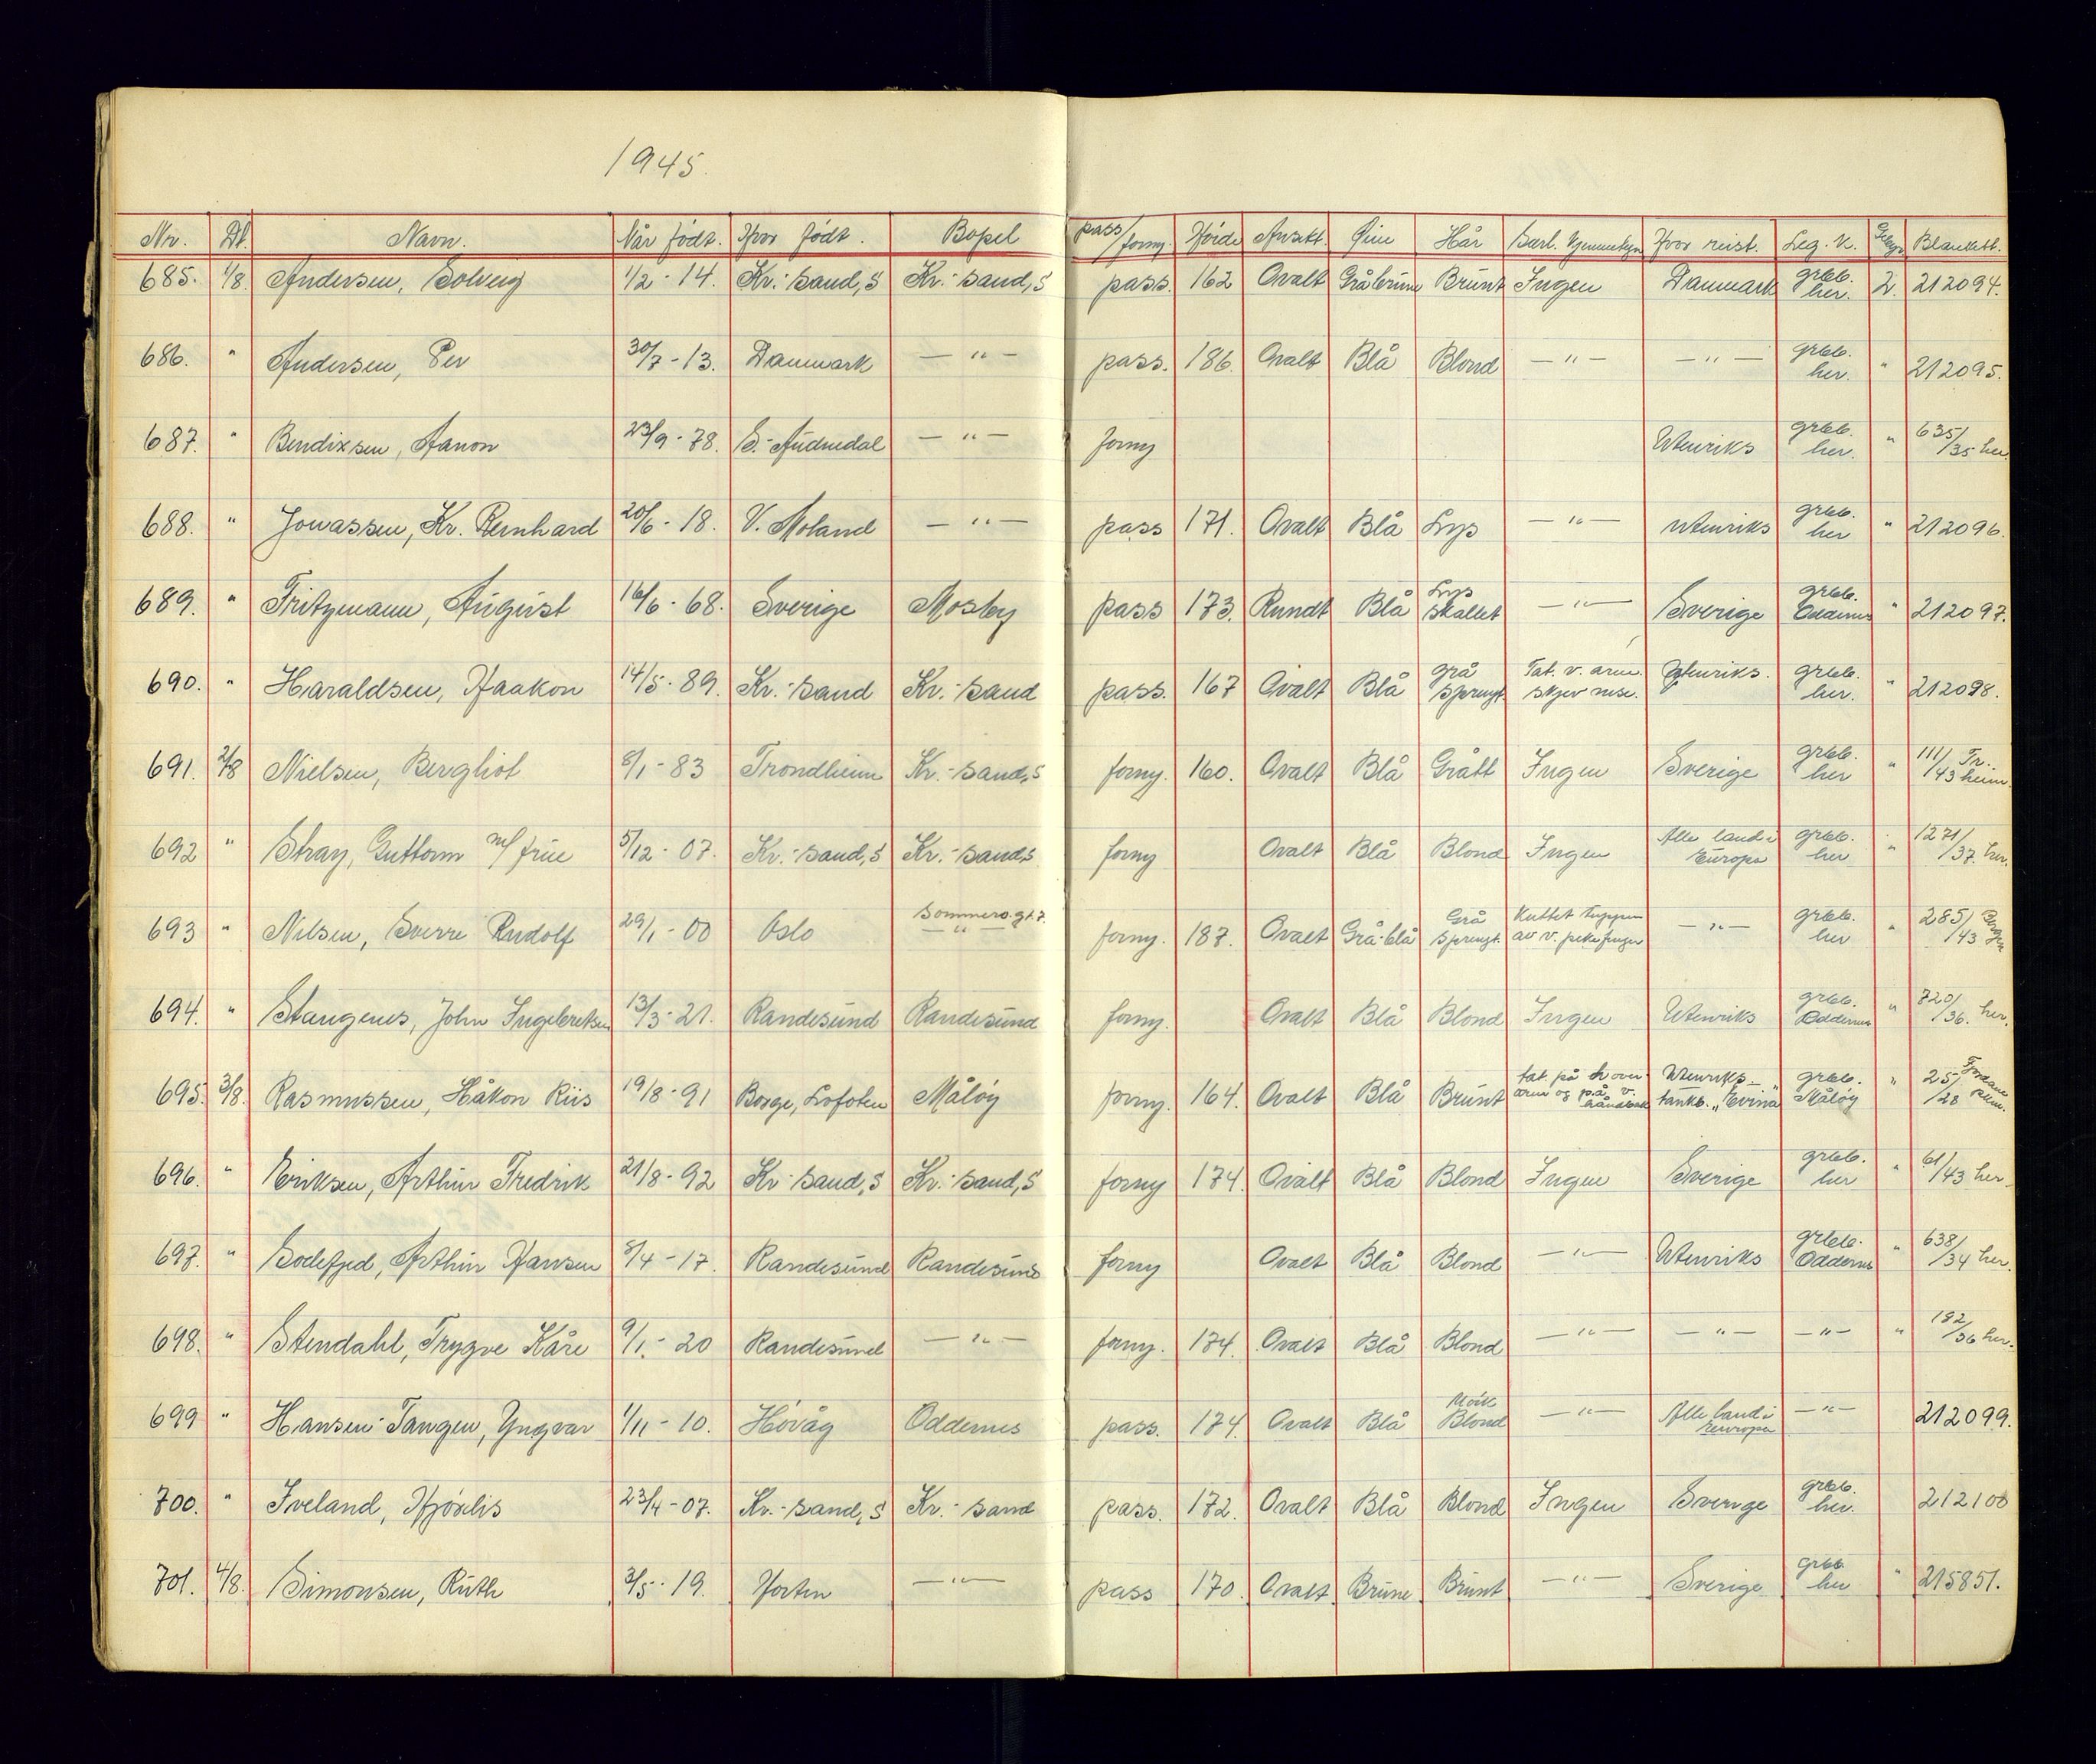 1945.
Nr. Dt. Navn. Når født. Hvor født. Bopel pass/forny. Høide Ansikt. Øine Hår Særl. kjennetegn Hvor reist. Leg. k. Gebyr Blankett.
685. 1/8. Andersen, Solveig 1/2 - 14. Kr.-sand, S Kr.-sand, S pass. 162 Ovalt Gråbrune Brunt Ingen Danmark grbb. her. 2. 212094.
686. " Andersen, Per 30/7 - 13. Danmark — " — pass. 186. Ovalt Blå Blond — " — — " — grbb. her. " 212095.
687. " Bendixsen, Aanon 23/9 - 78. S. Audnedal — " — forny Utenriks grbb. her. " 635/35 her.
688. " Jonassen, Kr. Bernhard 20/6 - 18. V. Moland — " — pass 171. Ovalt Blå Lys — " — Utenriks grbb. her " 212096.
689. " Fritzmann, August 16/6 - 68. Sverige Mosby pass 173. Rundt Blå Lys skallet — " — Sverige grbb. Oddernes " 212097.
690. " Haraldsen, Haakon 14/5 - 89. Kr.-sand Kr.-sand pass. 167 Ovalt Blå grå sprengt. Tat. v. arm. skjev nese. Utenriks. grbb. her. " 212098.
691. 2/8 Nielsen, Bergliot 8/1 - 83 Trondheim Kr.-sand, S forny. 160. Ovalt Blå Grått Ingen Sverige grbb. her " 111/43 Tr.heim.
692 " Stray, Guttorm m/ frue 5/12 - 07. Kr.-sand, S Kr.-sand, S forny Ovalt Blå Blond Ingen Alle land i Europa grbb. her " 1271/37. her.
693 " Nilsen, Sverre Rudolf 29/1 - 00 Oslo — " — Sommero.gt. 7. forny. 187. Ovalt Grå-blå Grå sprengt. Kuttet tuppen av v. pekefinger — " — grbb. her " 285/43 Bergen
694. " Stangenes, John Ingebretsen 13/3 - 21. Randesund Randesund forny. Ovalt Blå Blond Ingen Utenriks grbb. Oddernes " 720/36. her.
695. 3/8. Rasmussen, Håkon Riis 19/8 - 91 Borge, Lofoten Måløy forny. 164. Ovalt Blå Brunt tat. på h over arm og på v. håndbak Utenriks - tankb. "Evina" grbb. Måløy " 25/28 Fjordane pkm.
696. " Eriksen, Arthur Fredrik 21/8 - 92 Kr-sand, S Kr.-sand, S forny 174. Ovalt Blå Blond Ingen Sverige grbb. her " 61/43 her.
697. " Sodefjed, Arthur Hansen 8/4 - 17. Randesund Randesund forny Ovalt Blå Blond — " — Utenriks grbb. Oddernes " 638/34 her.
698. " Stendahl, Trygve Kåre 9/1. - 20 Randesund — " — forny. 174. Ovalt Blå Blond — " — — " — — " — " 182/36 her.
699 " Hansen-Tangen, Yngvar 1/11 - 10. Høvåg Oddernes pass. 174. Ovalt Blå Mørk Blond — " — Alle land i Europa — " — 212099.
700. " Iveland, Hjørdis 23/4 - 07. Kr.-sand, S Kr.-sand pass. 172. Ovalt Blå Blond Ingen Sverige grbb. her. 212100
701. 4/8. Simonsen, Ruth 3/5 - 19. Horten — " — pass 170. Ovalt. Brune. Brunt — " — Sverige grbb. her " 215851.